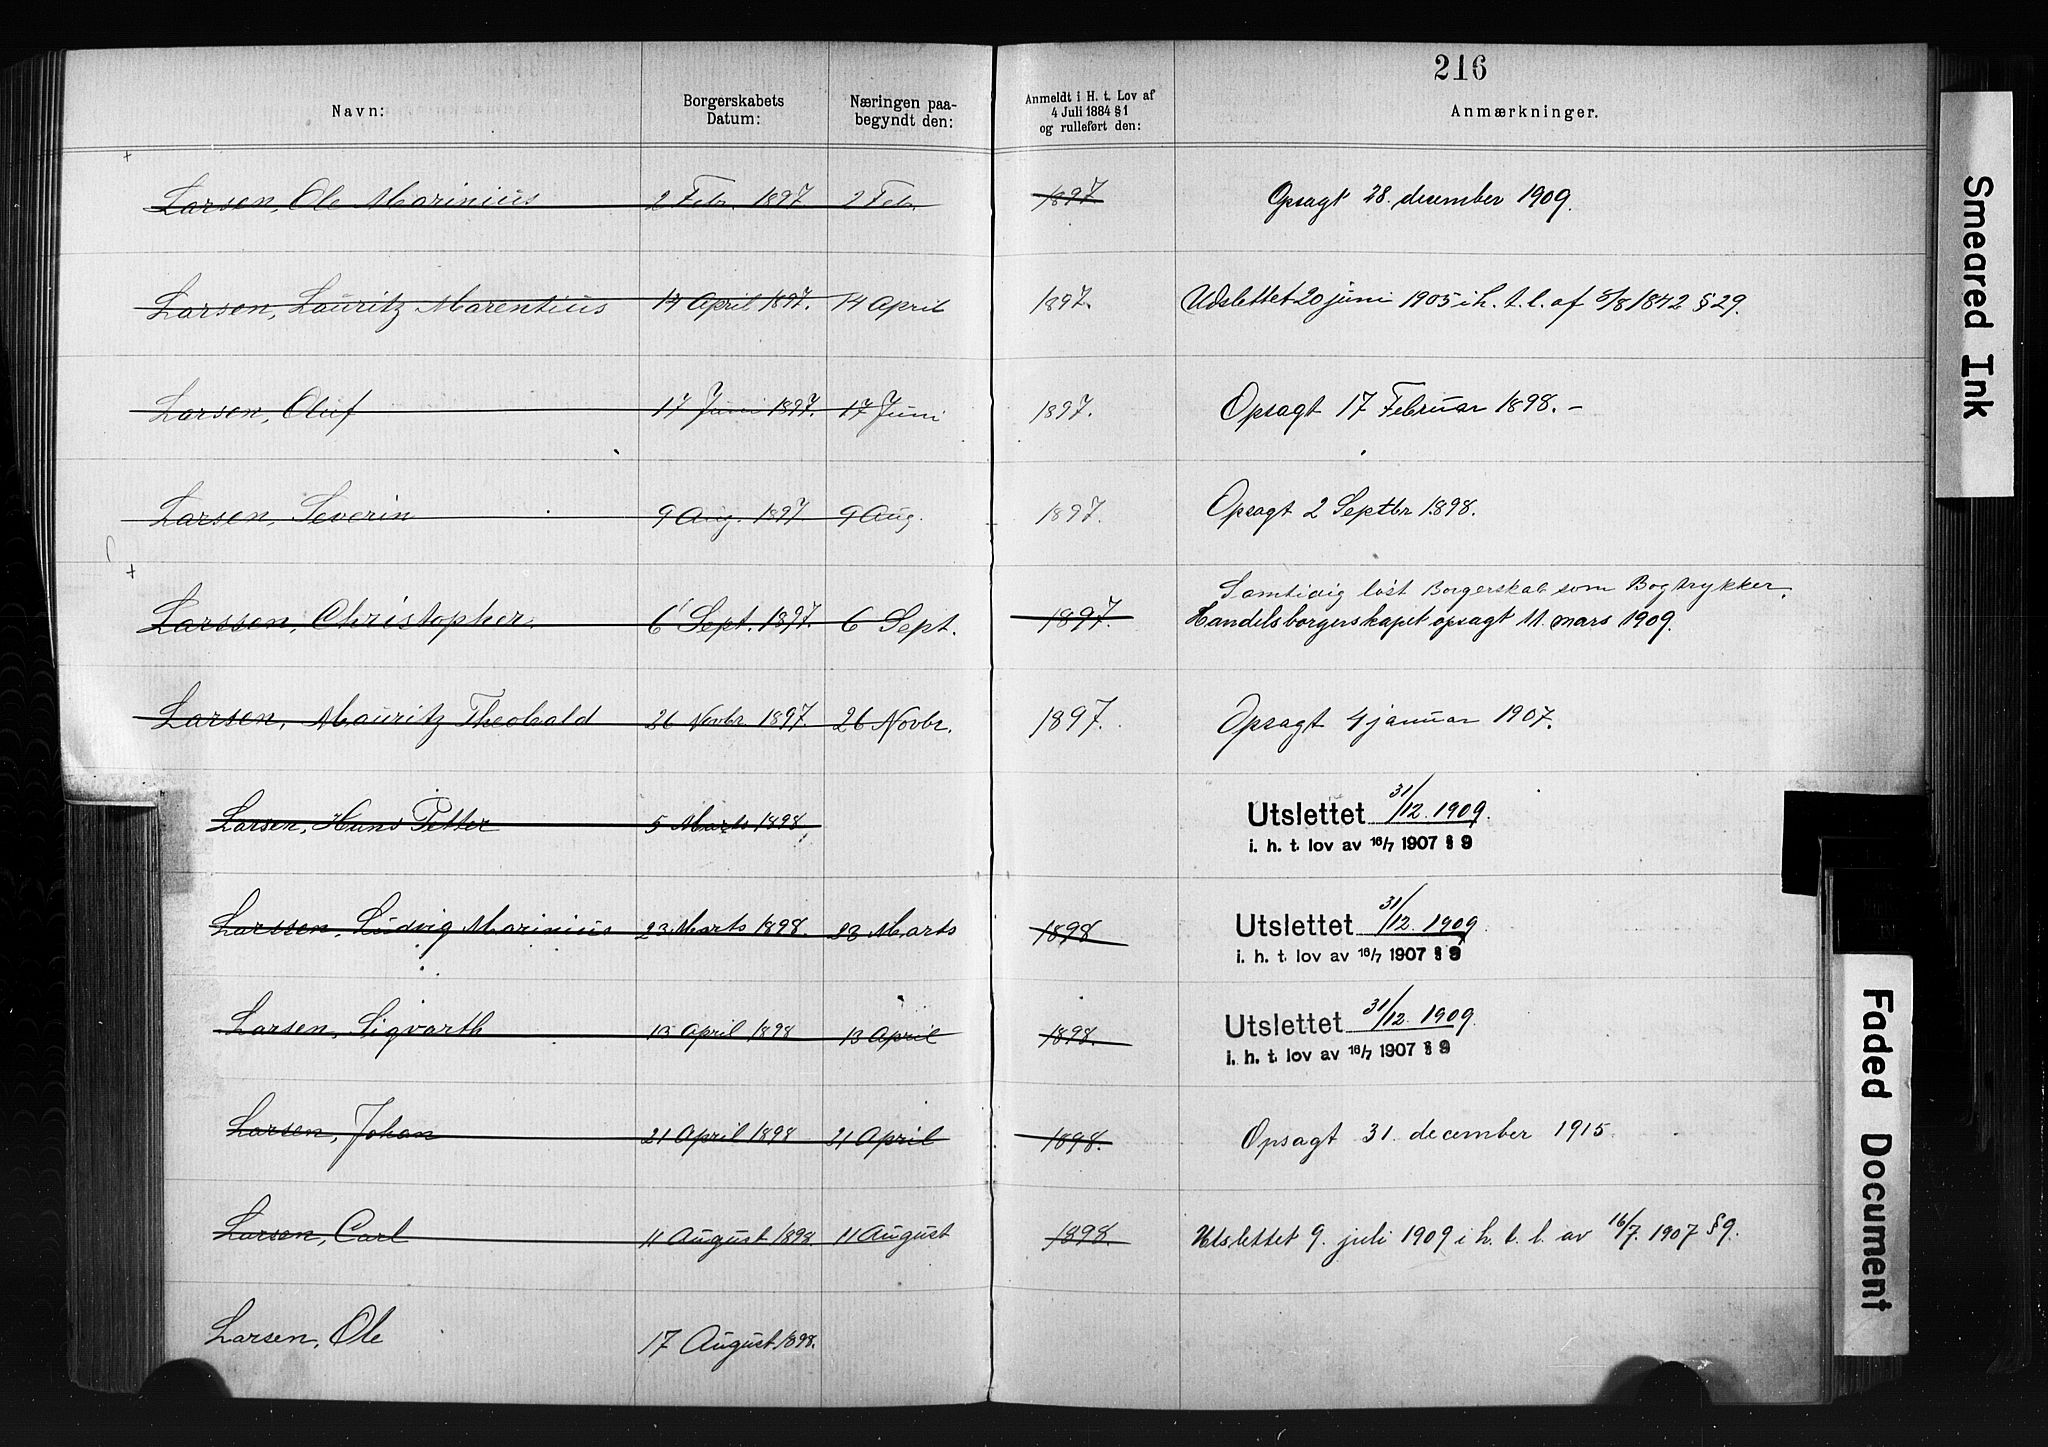 216
Navn: Borgerskabets Datum: Næringen paabegyndt den: Anmeldt i H. t. Lov af 4 Juli 1884 § 1 og rulleført den: Anmærkninger.
Larsen, Ole Marinius 2 Febr. 1897 2 Febr. 1897 Opsagt 28. december 1909.
Larsen, Lauritz Marentius 14 April 1897. 14 April 1897. Udslettet 20 juni 1905 i h. t. l. af 8/8 1842 § 29.
Larsen, Oluf 17 Juni 1897. 17 Juni 1897. Opsagt 17 Februar 1898. –
Larsen, Severin 9 Aug. 1897 9 Aug. 1897. Opsagt 2 Septbr 1898.
Samtidig løst Borgerskab som Bogtrykker.
Larssen, Christopher. 6 Sept. 1897. 6 Sept. 1897. Handelsborgerskapet opsagt 11. mars 1909.
Larsen, Mauritz Theobald 26 Novbr 1897 26 Novbr. 1897. Opsagt 4 januar 1907.
Larsen, Hans Petter 5 Marts 1898. Utslettet 31/12. 1909.
i. h. t. lov av 16/7 1907 § 9
Larssen, Ludvig Marinius 23 Marts 1898. 23 Marts 1898 Utslettet 31/12. 1909.
i. h. t. lov av 16/7 1907 § 9
Larsen, Sigvarth 13 April 1898 13 April 1898. Utslettet 31/12. 1909.
i. h. t. lov av 16/7 1907 § 9
Larsen, Johan 21 April 1898 21 April 1898. Opsagt 31. december 1915.
Larsen, Carl 11 August 1898 11 August 1898. Utslettet 9. juli 1909 i h. t. l. av 16/7. 1907 § 9.
Larsen, Ole 17 August 1898.
Smeared Ink
Faded Document